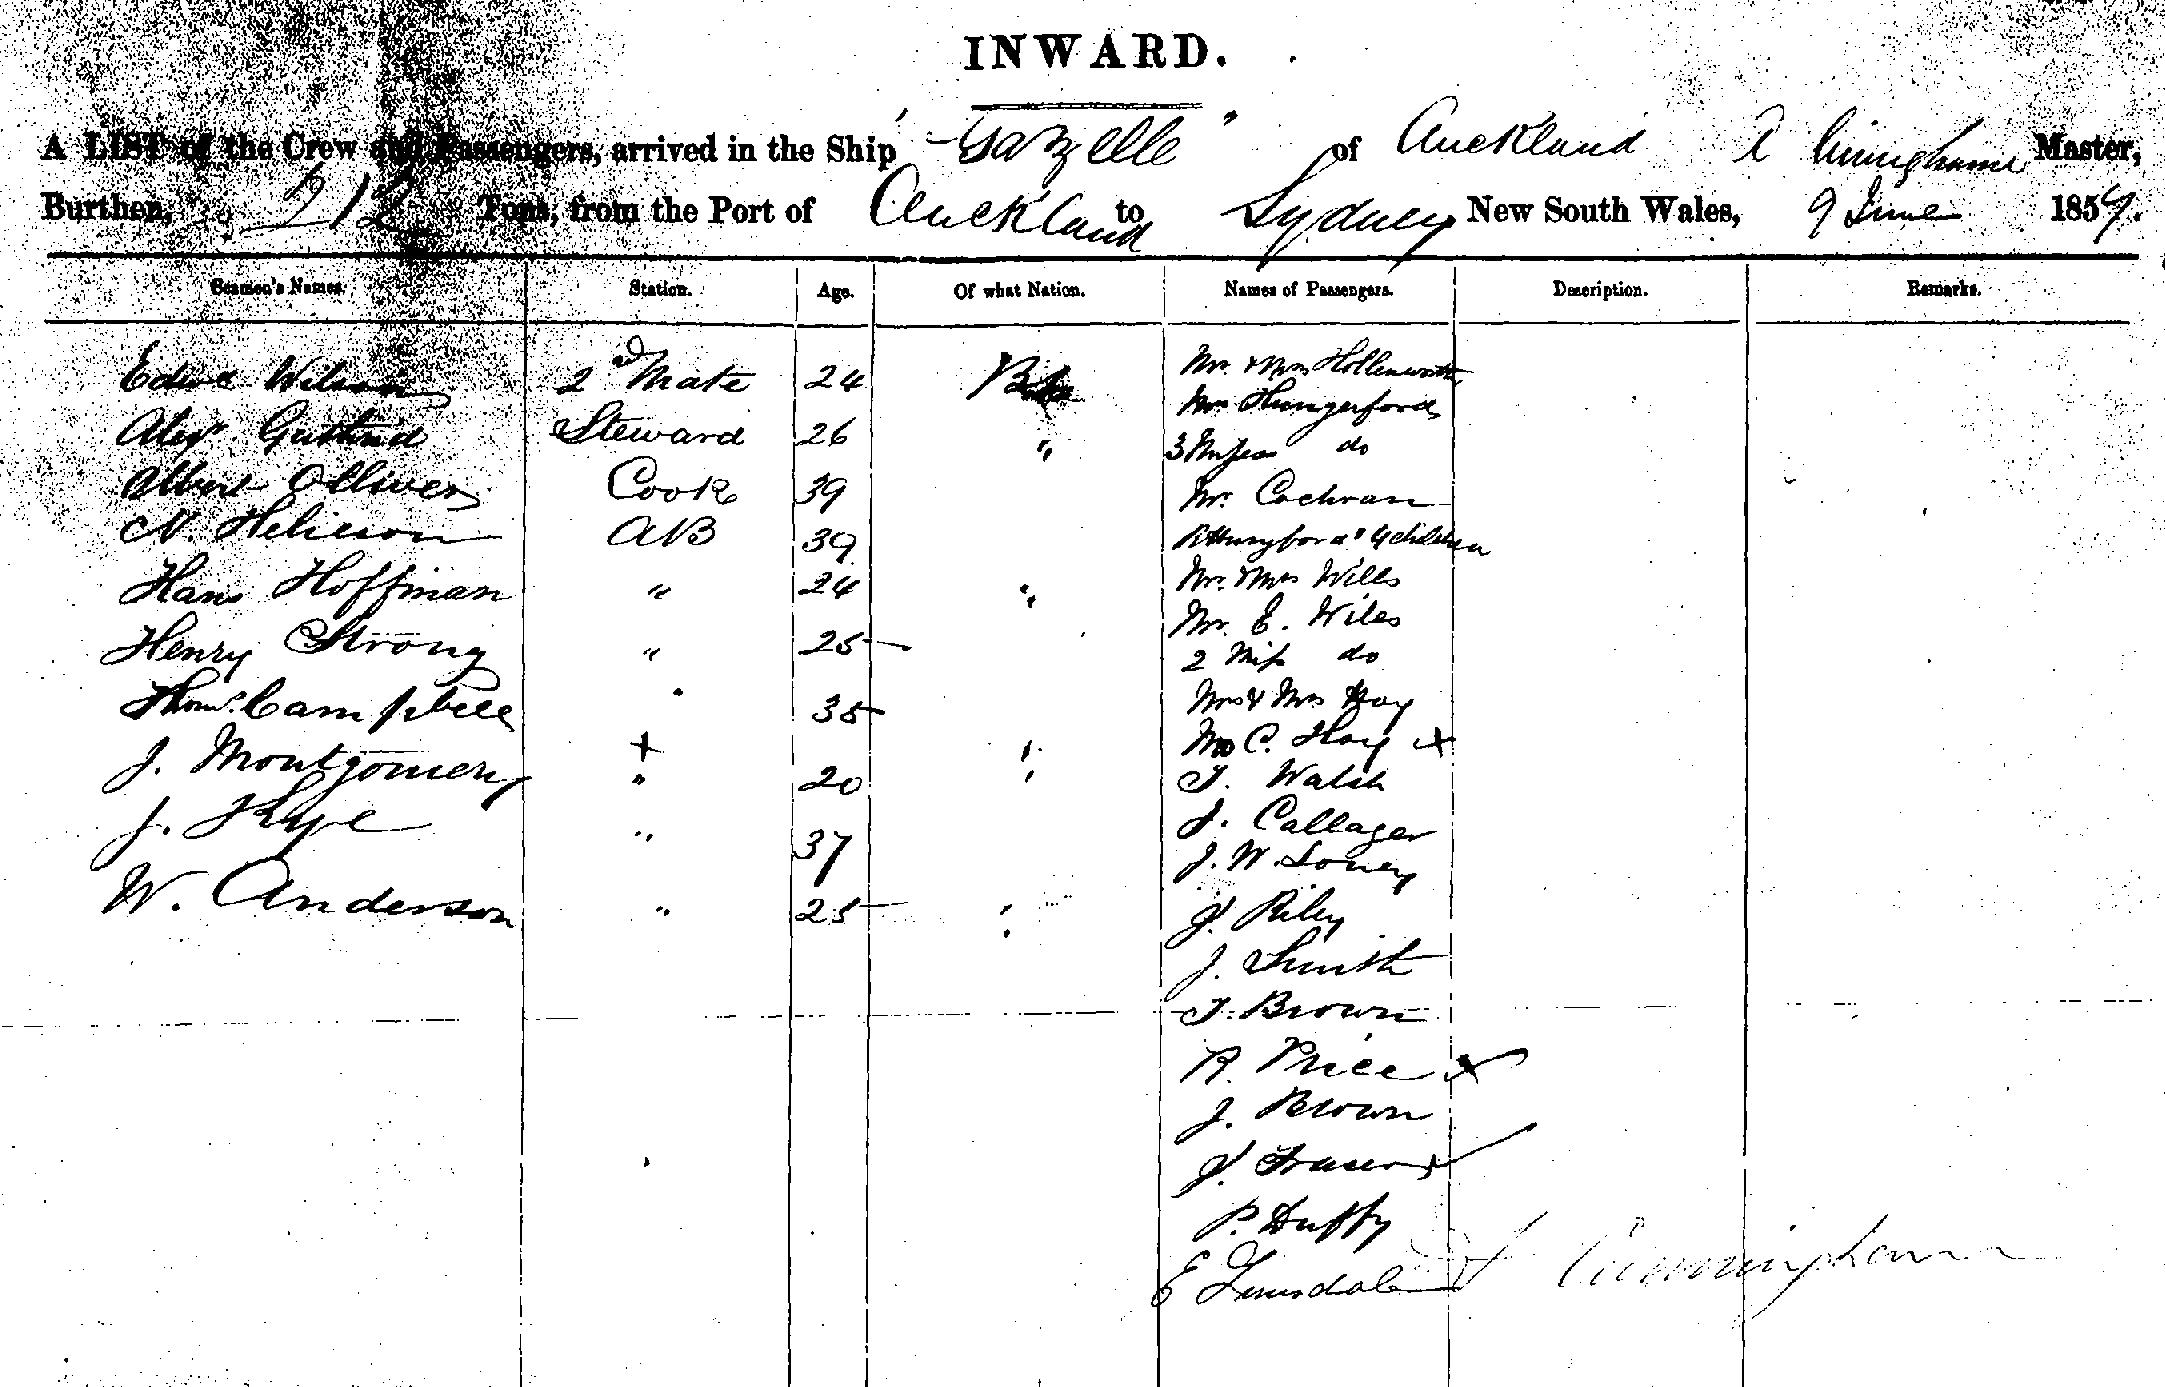 INWARD.
A LIST of the Crew and Passengers, arrived in the Ship "Gazelle" of Auckland Master,
Burthen, 212 Tons, from the Port of Auckland to Sydney New South Wales, 9 June 1859.
Seamen's Names. Station. Age. Of what Nation. Names of Passengers. Description. Remarks.
Wilson 2d Mate 24 Mr & Mrs
Steward 26 " Mrs Hungerford
3 Misses do
Albert Olliver Cook 39 Mr. Cochran
N. AB 39 children
Hans Hoffman " 24 " Mr. & Mrs Wills
Mr. E. Wiles
Henry Strong " 25 2 Miss do
Thos. Campbell " 35 & Mrs Hay
J. Montgomery + " 20 " C. Hay x
" T. Walsh
J. " 37 J. Callager
J. W. Loney
W. Anderson " 25 " J. Riley
J. Smith
T. Brown
R. Price x
J. Brown
J. Fraser x
P. Duffy
E Lunsdale Cunningham